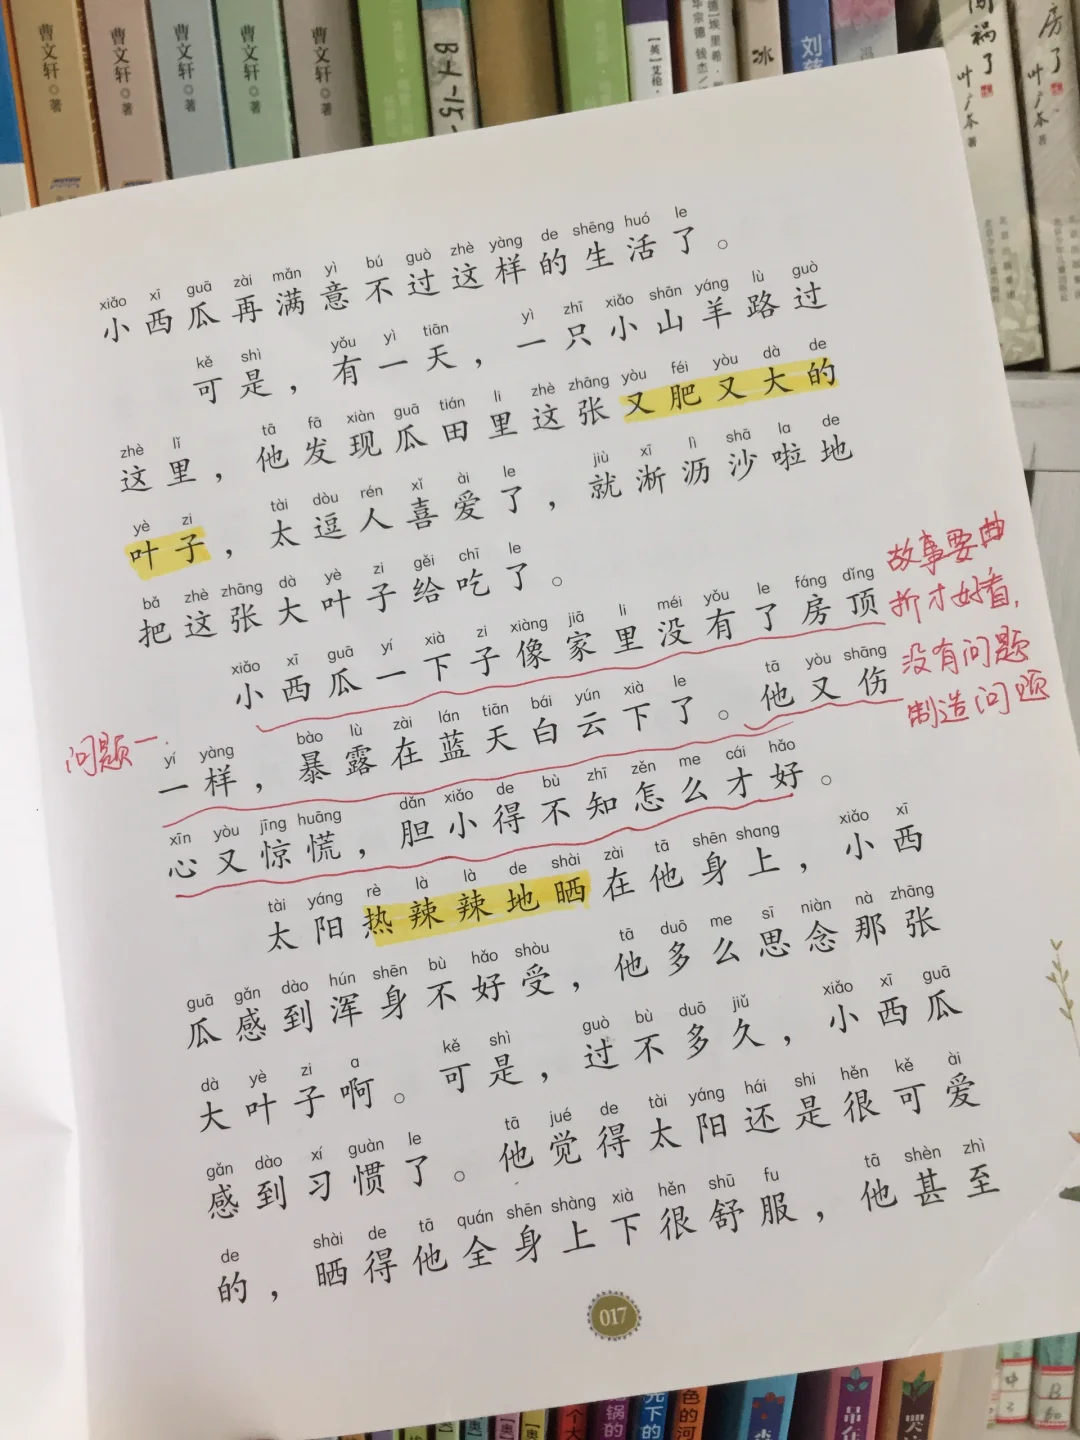 曹文轩◎著
曹文轩◎著
曹文轩◎著
曹文轩◎著
曹文轩◎著
B-1-15-
冰
叶广芩 著
房了
叶广芩 著
xiǎo xī guā zài mǎn yì bú guò zhè yàng de shēng huó le
小西瓜再满意不过这样的生活了。
kě shì yǒu yì tiān yì zhī xiǎo shān yáng lù guò
可是，有一天，一只小山羊路过
zhè lǐ tā fā xiàn guā tián li zhè zhāng yòu féi yòu dà de
这里，他发现瓜田里这张又肥又大的
yè zi tài dòu rén xǐ ài le jiù xī lì shā la de
叶子，太逗人喜爱了，就淅沥沙啦地
bǎ zhè zhāng dà yè zi gěi chī le
把这张大叶子给吃了。
xiǎo xī guā yí xià zi xiàng jiā li méi yǒu le fáng dǐng
小西瓜一下子像家里没有了房顶
yí yàng bào lù zài lán tiān bái yún xià le tā yòu shāng
一样，暴露在蓝天白云下了。他又伤
xīn yòu jīng huāng dǎn xiǎo de bù zhī zěn me cái hǎo
心又惊慌，胆小得不知怎么才好。
tài yáng rè là là de shài zài tā shēn shang xiǎo xī
太阳热辣辣地晒在他身上，小西
guā gǎn dào hún shēn bù hǎo shòu tā duō me sī niàn nà zhāng
瓜感到浑身不好受，他多么思念那张
dà yè zi a kě shì guò bù duō jiǔ xiǎo xī guā
大叶子啊。可是，过不多久，小西瓜
gǎn dào xí guàn le tā jué de tài yáng hái shi hěn kě ài
感到习惯了。他觉得太阳还是很可爱
de shài de tā quán shēn shàng xià hěn shū fu tā shèn zhì
的，晒得他全身上下很舒服，他甚至
017
问题一
故事要曲
折才好看，
没有问题
制造问题